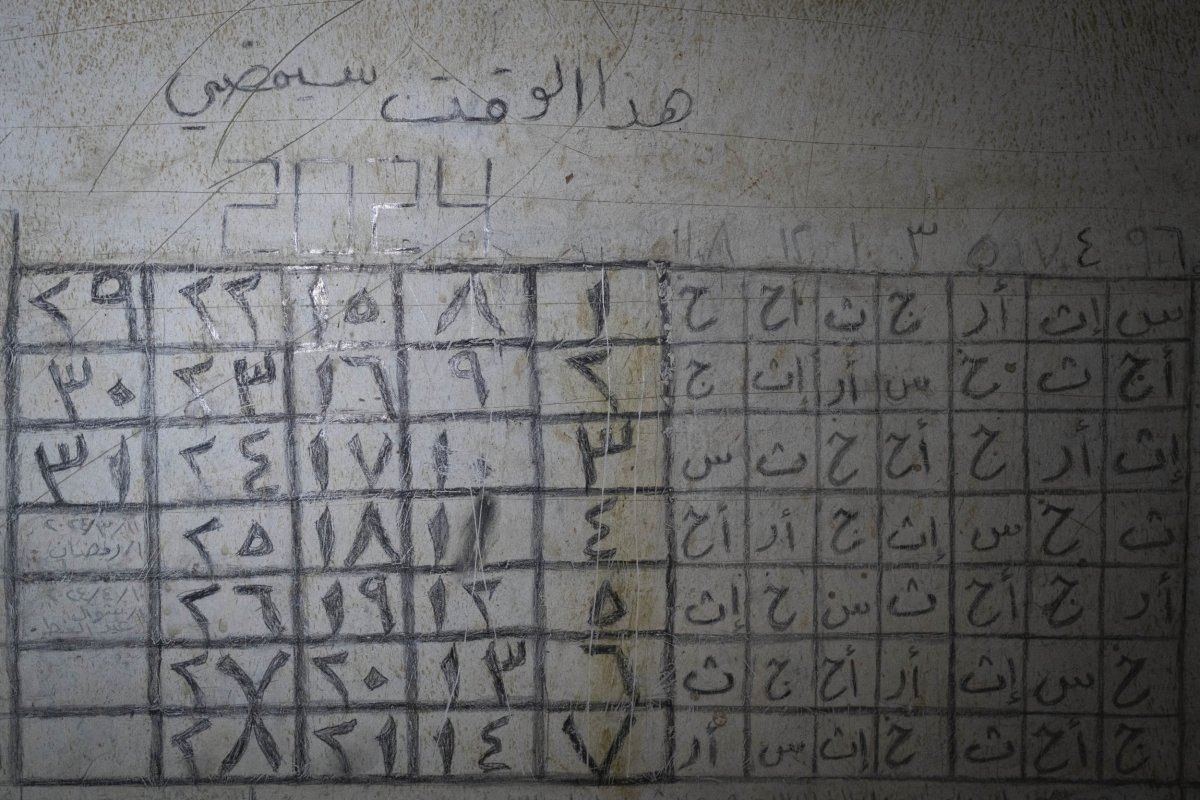 هدا الوقت سيمضي
2024
٩٦ ٤ ٧ ١ ٥ ٣ ١٠ ١٢ ٨ ١١
س إث أر ج ث أح خ ١ ٨ ١٥ ٢٢ ٢٩
أح ث خ س أر إث ج ٢ ٩ ١٦ ٢٣ ٣٠
إث أر ج أح خ ث س ٣ ١٠ ١٧ ٢٤ ٣١
ث خ س إث ج أر أح ٤ ١١ ١٨ ٢٥ ١١/٣/٢٠٢٤
١/رمضان
أر ج أح ث س خ إث ٥ ١٢ ١٩ ٢٦
خ س إث أر أح ج ث ٦ ١٣ ٢٠ ٢٧
ج أح ث خ إث س أر ٧ ١٤ ٢١ ٢٨